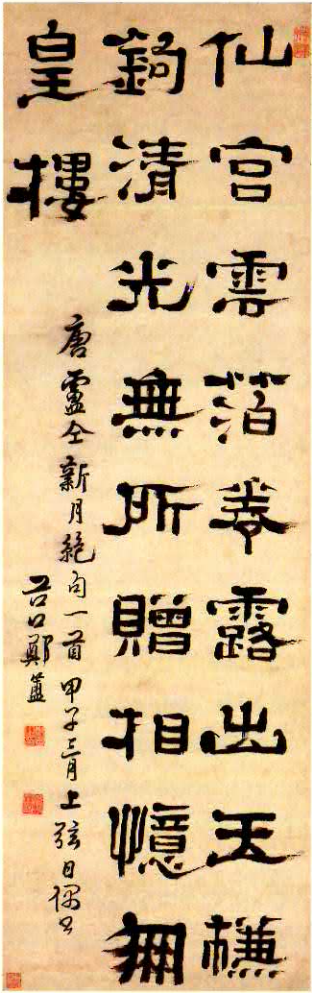 仙宮雲箔卷露出玉㡘
鉤清光無所贈相憶朋
皇樓
唐盧仝新月絕句一首甲子三月上弦日偶書
谷口鄭簠